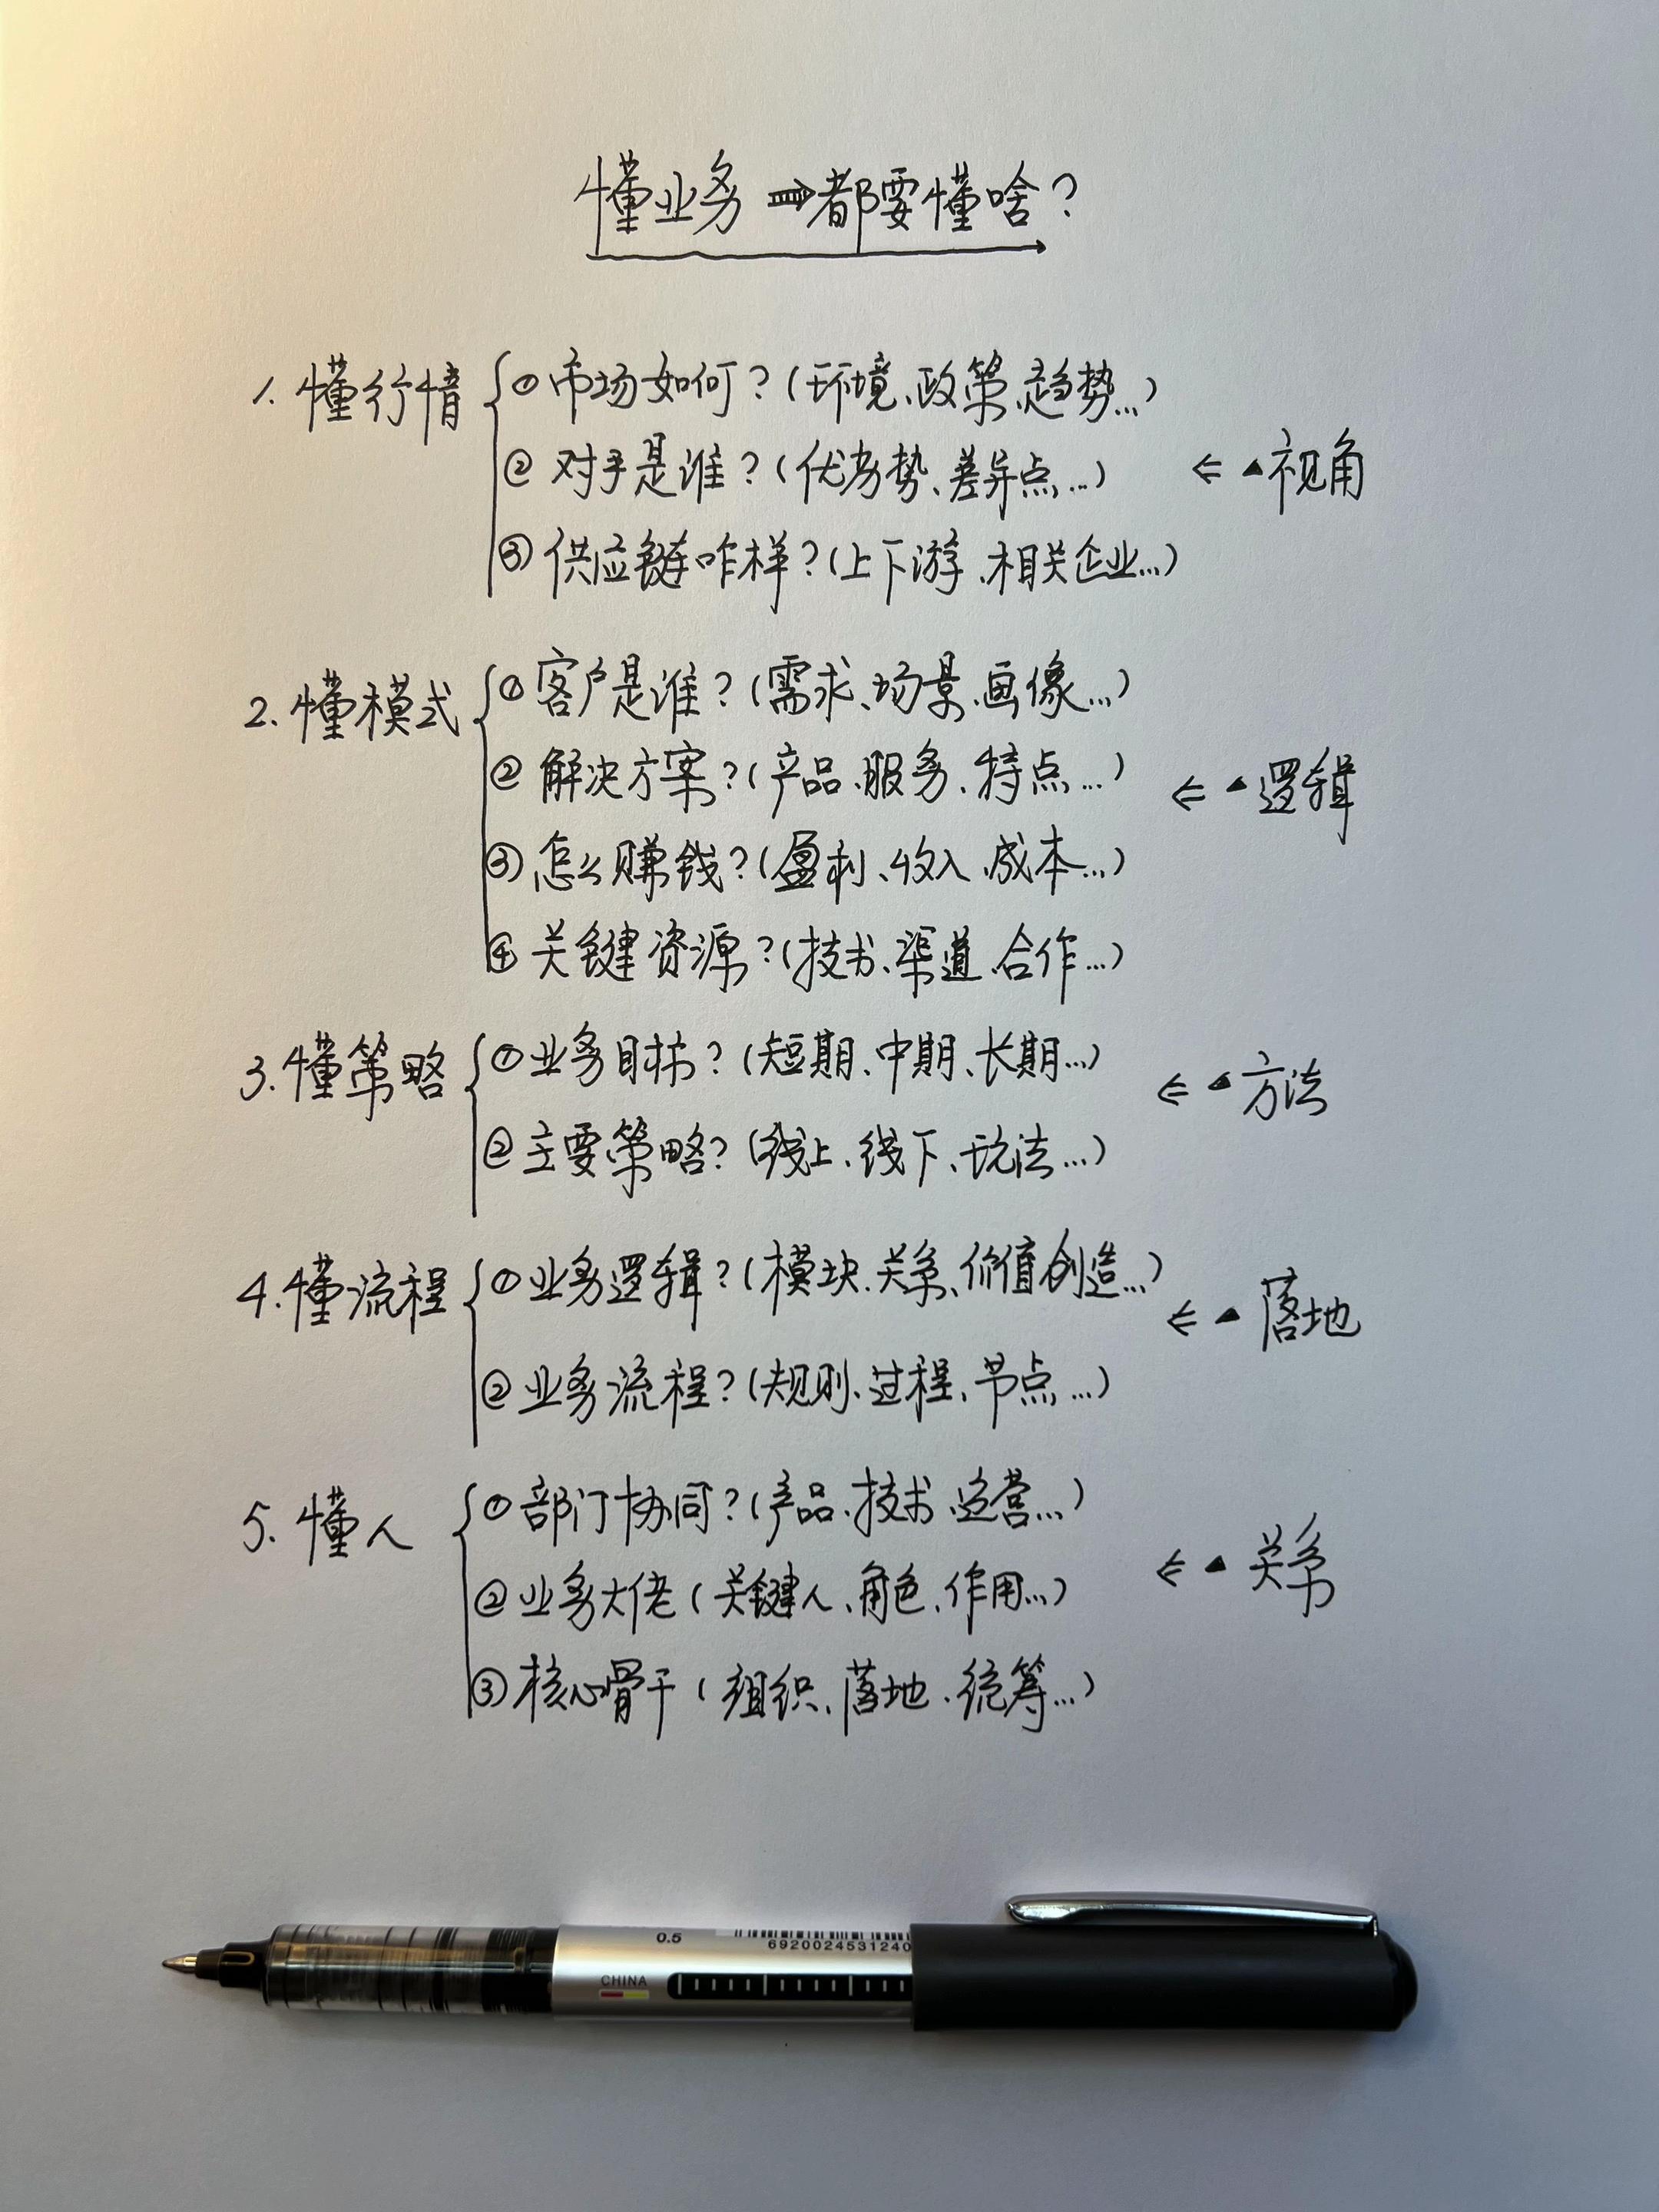 懂业务 ⇒ 都要懂啥？
1. 懂行情
① 市场如何？(环境、政策、趋势…)
② 对手是谁？(优劣势、差异点…)
③ 供应链咋样？(上下游、相关企业…)
⇐ ▲视角
2. 懂模式
① 客户是谁？(需求、场景、画像…)
② 解决方案？(产品、服务、特点…)
③ 怎么赚钱？(盈利、收入、成本…)
④ 关键资源？(技术、渠道、合作…)
⇐ ▲逻辑
3. 懂策略
① 业务目标？(短期、中期、长期…)
② 主要策略？(线上、线下、玩法…)
⇐ ▲方法
4. 懂流程
① 业务逻辑？(模块、关系、价值创造…)
② 业务流程？(规则、过程、节点…)
⇐ ▲落地
5. 懂人
① 部门协同？(产品、技术、运营…)
② 业务大佬(关键人、角色、作用…)
③ 核心骨干(组织、落地、统筹…)
⇐ ▲关系
0.5
6920024531240
CHINA